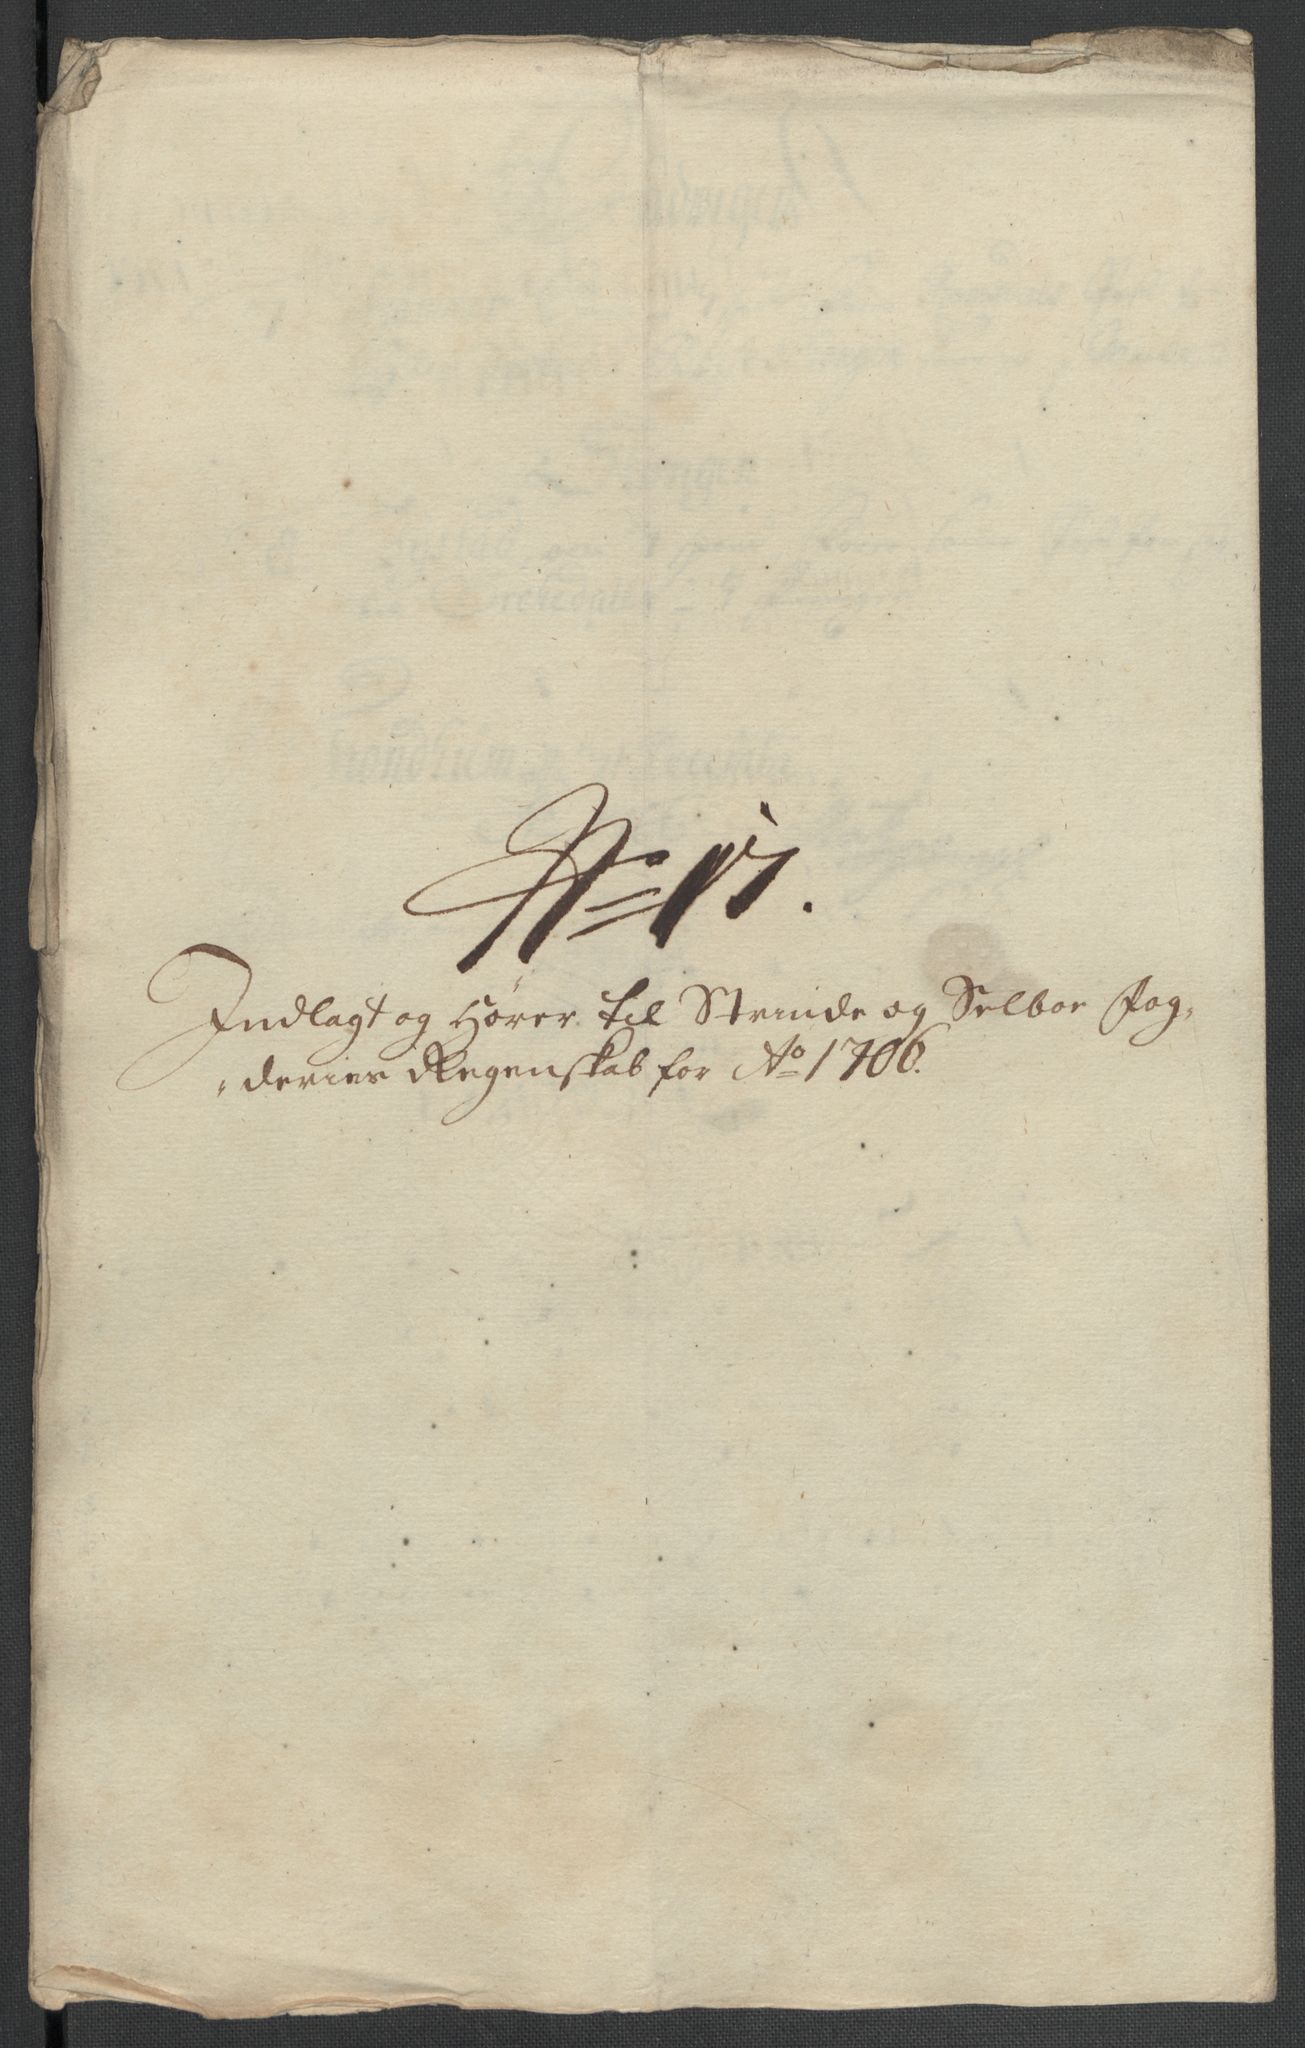 No 15.
Indlagt og Hører til Strinde og Selboe fog,
"deriers Regenskab for Ao 1706.